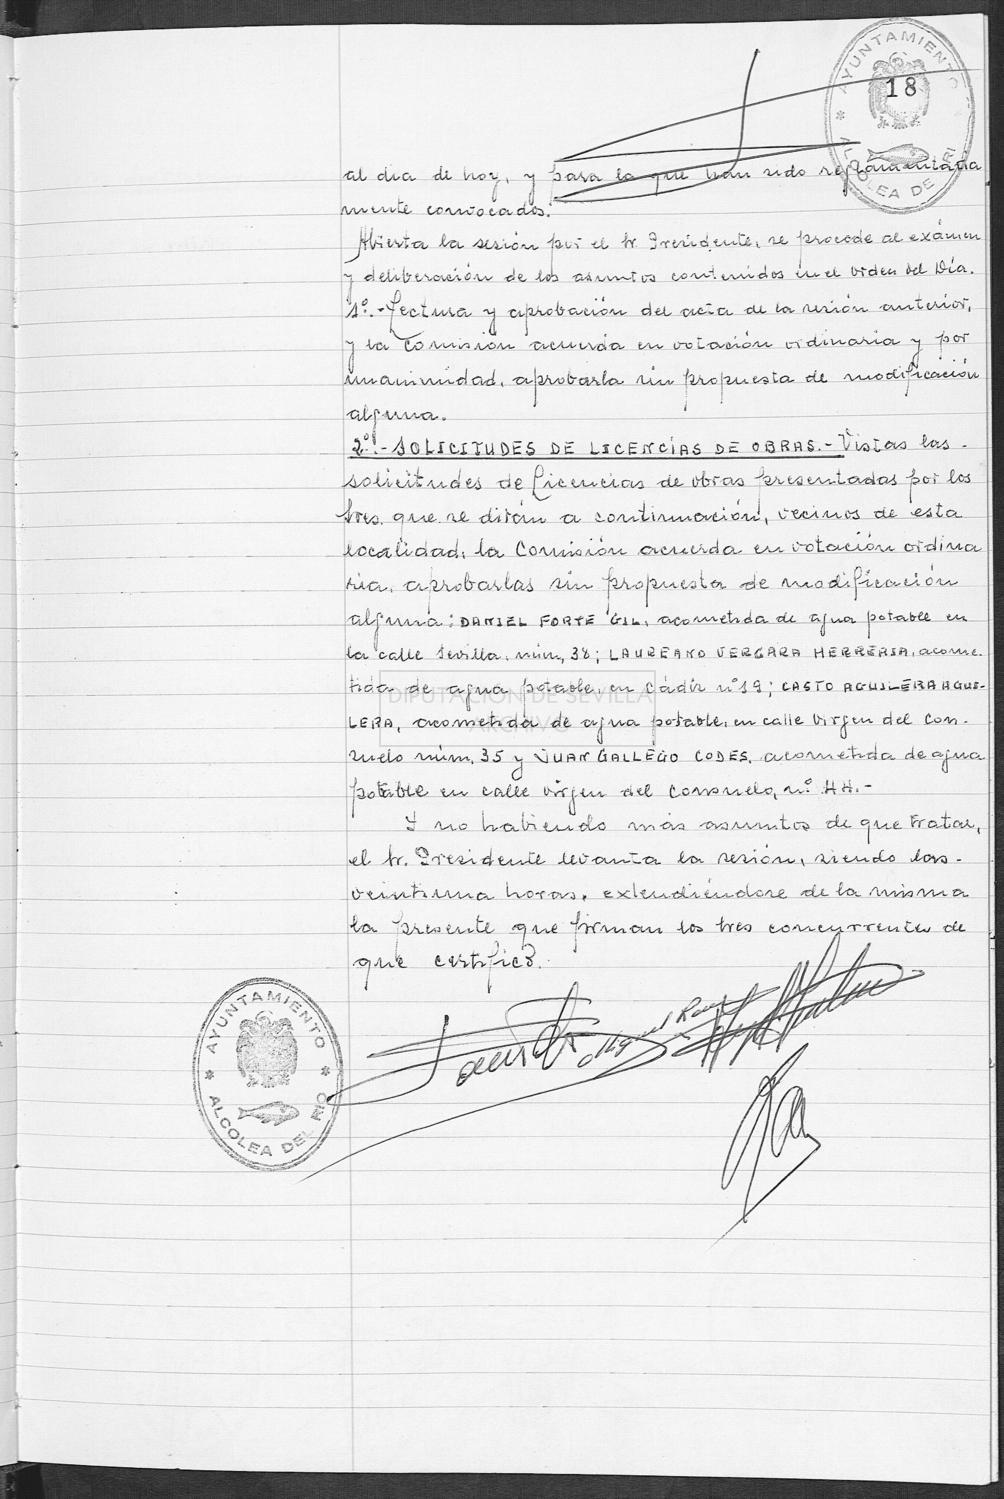 AYUNTAMIENTO
ALCOLEA DE RI
18
al dia de hoy, y para lo que han sido reglamentaria
mente convocados.
Abierta la sesión por el Sr. Presidente, se procede al exámen
y deliberación de los asuntos contenidos en el orden del Día.
1º.- Lectura y aprobación del acta de la sesión anterior,
y la Comisión acuerda en votación ordinaria y por
unanimidad, aprobarla sin propuesta de modificación
alguna.
2º.- SOLICITUDES DE LICENCÍAS DE OBRAS.- Vistas las-
solicitudes de Licencias de obras presentadas por los
Sres. que se dirán a continuación, vecinos de esta
localidad, la Comisión acuerda en votación ordina
ria, aprobarlas sin propuesta de modificación
alguna: DANIEL FORTE GIL, acometida de agua potable en
la calle Sevilla, núm, 38; LAUREANO VERGARA HERRERIA, acome-
tida de agua potable, en Cádiz nº 19; CASTO AGUILERA AGUI-
LERA, acometida de agua potable, en calle Virgen del Con-
suelo núm, 35 y JUAN GALLEGO CODES, acometida de agua
potable en calle Virgen del Consuelo, nº 44.-
Y no habiendo más asuntos de que tratar,
el Sr. Presidente levanta la sesión, siendo las-
veintiuna horas, extendiéndose de la misma
la presente que firman los Sres concurrentes de
que certifico.
DIPUTACIÓN DE SEVILLA
ARCHIVO
AYUNTAMIENTO
ALCOLEA DEL RIO
Miguel